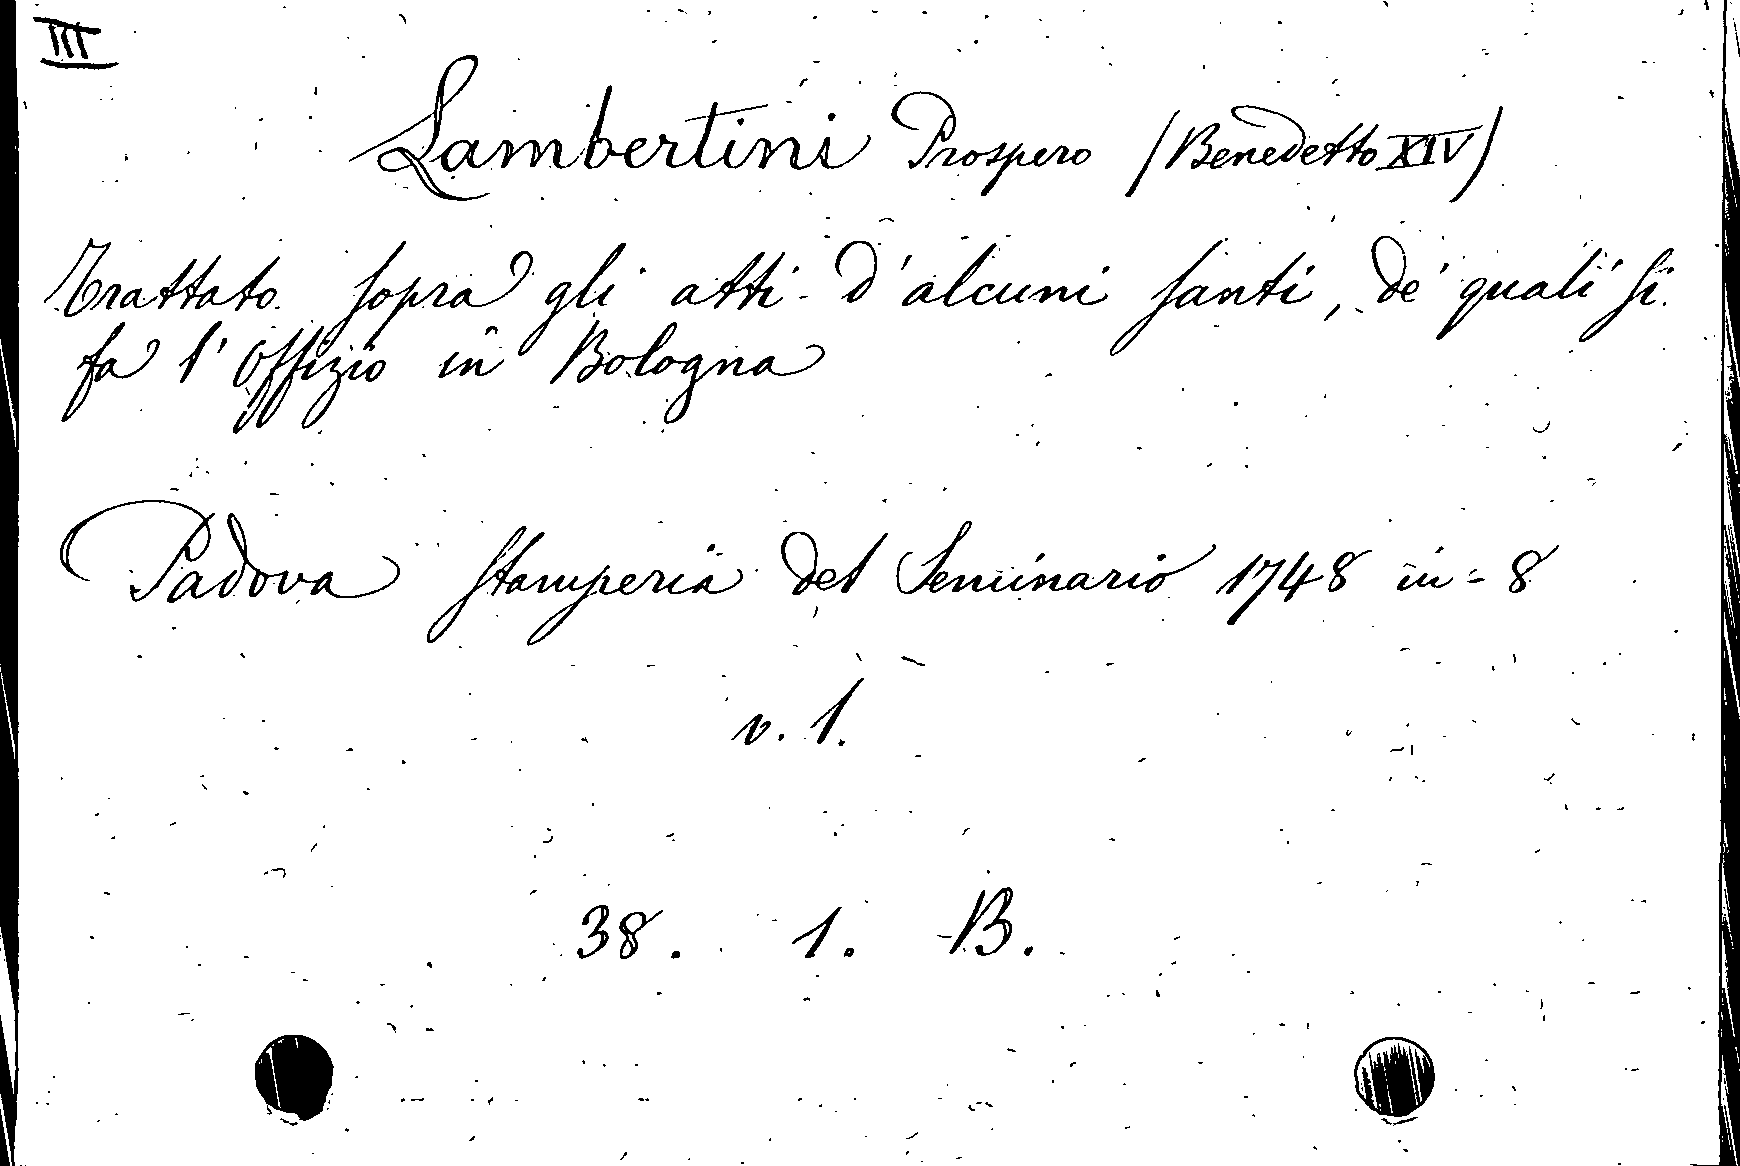 III
Lambertini Prospero (Benedetto XIV)
Trattato sopra gli atti d'alcuni santi, de' quali si
fa l'Offizio in Bologna
Padova Stamperia del Seminario 1748 in-8
v. 1.
38. 1. B.